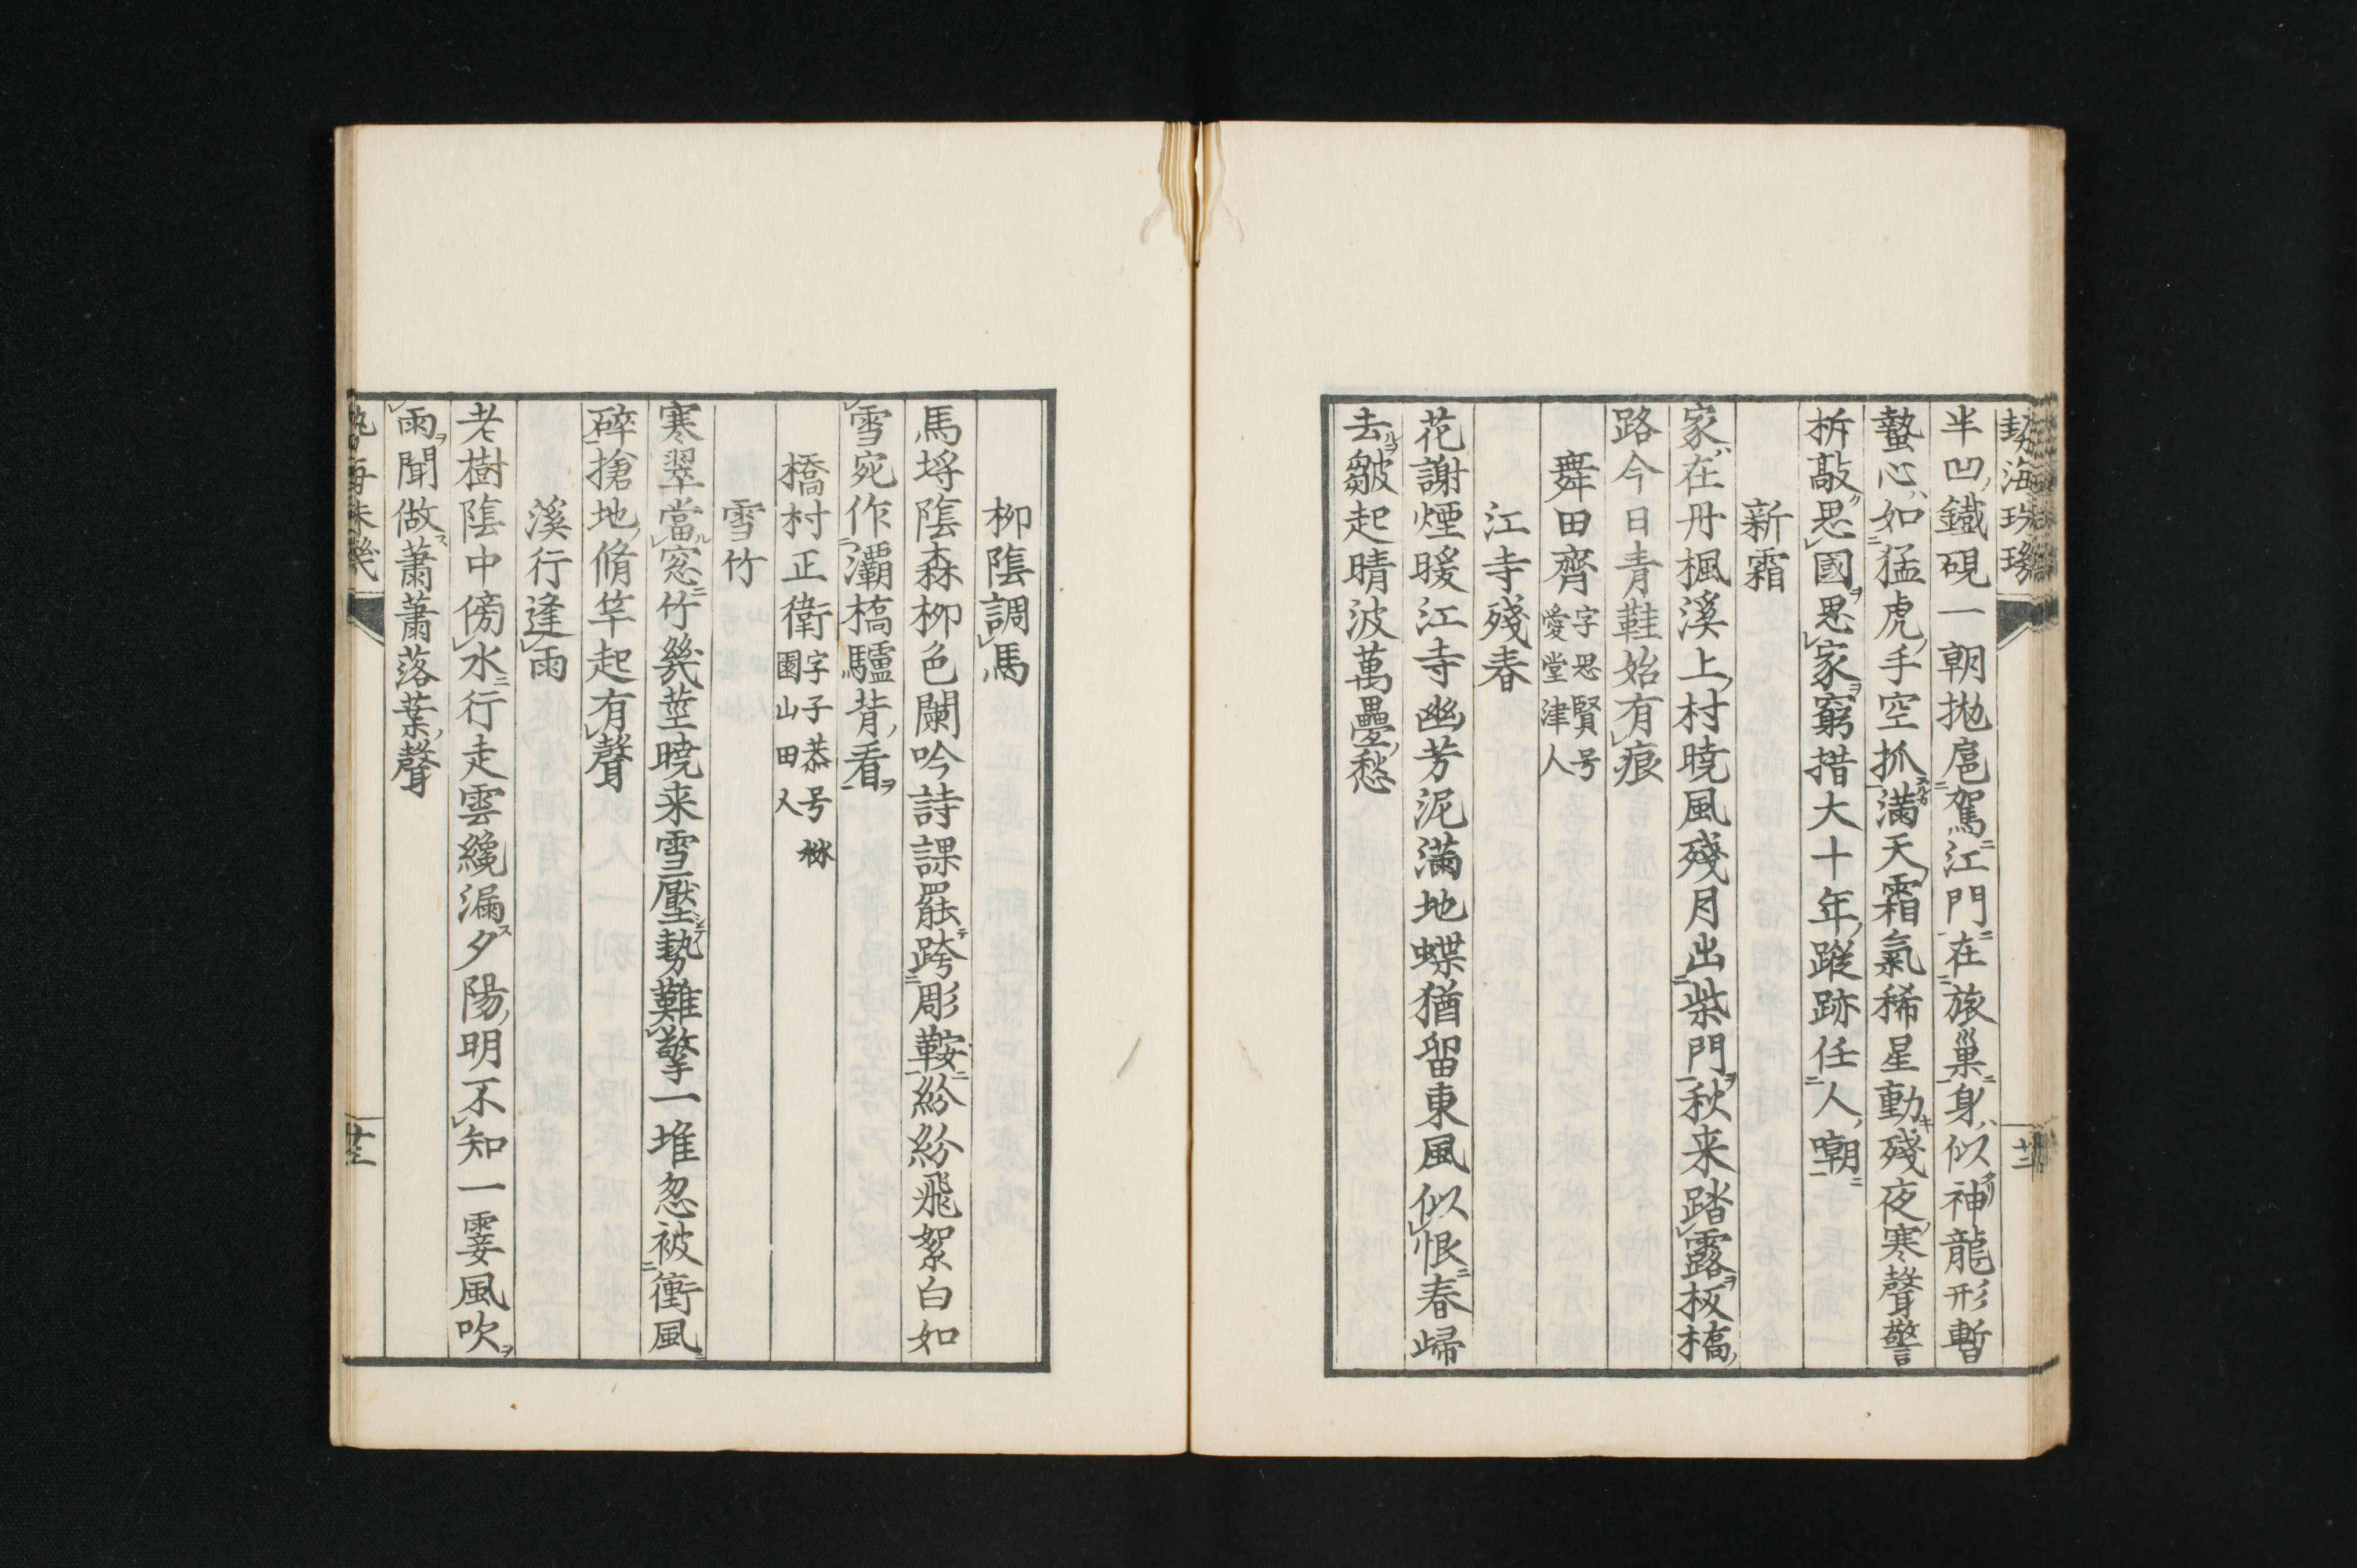 勢海珠璣
十二
半凹鐵硯一朝抛扈駕江門在旅巢身似神龍形暫
蟄心如猛虎手空抓滿天霜氣稀星動殘夜寒聲警
柝敲思國思家窮措大十年蹤跡任人嘲
新霜
家在丹楓溪上村曉風殘月出柴門秋来踏露板橋
路今日青鞋始有痕
舞田齊 字思賢号愛堂津人
江寺殘春
花謝煙暖江寺幽芳泥滿地蝶猶留東風似恨春歸
去皺起晴波萬疊愁
柳陰調馬
馬埒陰森柳色闌吟詩課罷跨彫鞍紛紛飛絮白如
雪宛作灞橋驢背看
橋村正衛 字子恭号楙園山田人
雪竹
寒翠當窓竹幾莖曉来雪壓勢難擎一堆忽被衝風
碎搶地脩竿起有聲
溪行逢雨
老樹陰中傍水行走雲纔漏夕陽明不知一霎風吹
雨聞做蕭蕭落葉聲